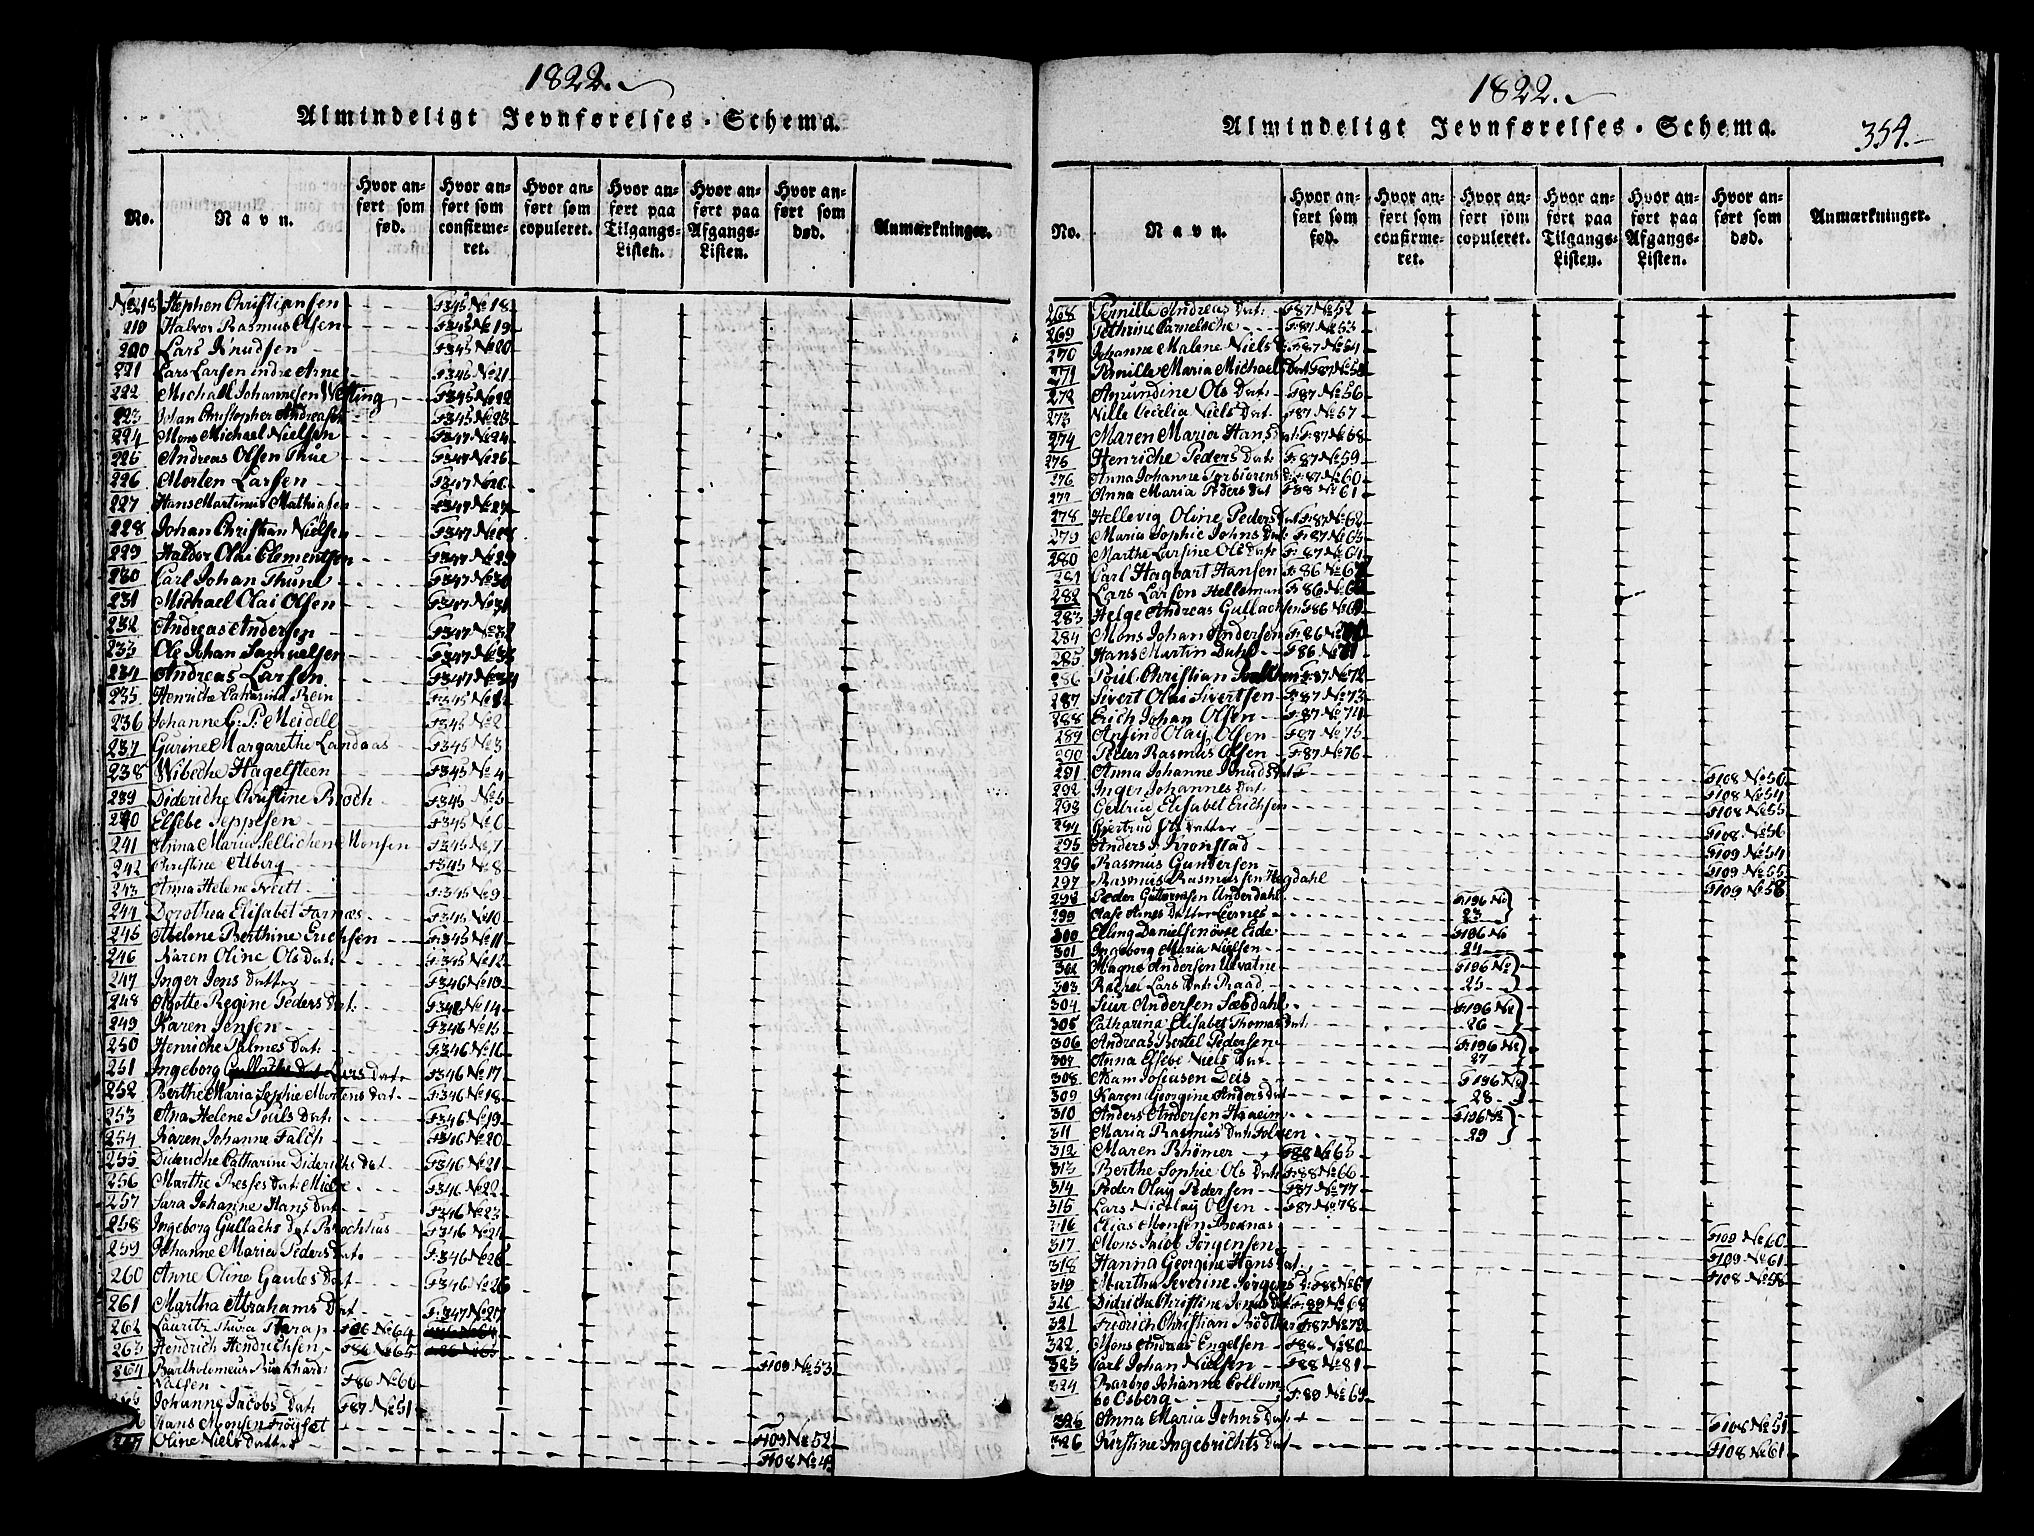 1822.
Almindeligt Jevnførelses-Schema.
No.
Navn.
Hvor anført som fød.
Hvor anført som confirmeret.
Hvor anført som copuleret.
Hvor anført paa Tilgangs-Listen.
Hvor anført paa Afgangs-Listen.
Hvor anført som død.
Anmærkninger.
No 218 Stephen Christiansen F345 No 18
219 Halvor Rasmus Olsen F345 No 19
220 Lars Knudsen F345 No 20
221 Lars Larsen indre Arne F346 No 21
222 Michael Johannesen F345 No 22
223 Johan Christopher Andreasen F345 No 23
224 Mons Michael Nielsen F347 No 24
225 Andreas Olsen Thue F347 No 25
226 Morten Larsen F347 No 26
227 Hans Martinus Mathiasen F347 No 27
228 Johan Christian Nielsen F347 No 28
229 Haldor Olai Clementsen F347 No 29
230 Carl Johan Thune F347 No 30
231 Michael Olai Olsen F347 No 31
232 Andreas Andersen F347 No 32
233 Ole Johan Samuelsen F347 No 33
234 Andreas Larsen F347 No 34
235 Henriche Catharina Rein F345 No
236 Johanne G: P: Meidell F345 No 2
237 Gurine Margarethe Landaas F345 No 3
238 Wibeche Hagelsteen F345 No 4
239 Dideriche Christine Broch F345 No 5
240 Elsebe Jeppesen F345 No 6
241 Anna Maria Monsen F345 No 7
242 Christine Alberg F345 No 8
243 Anna Helene F:345 No 9
244 Dorothea Elisabet Farnæs F345 No 10
245 Abelone Berthine Erichsen F:345 No 11
246 Karen Oline Ols Dat: F:345 No 12
247 Inger Jons Datter F346 No 10
248 Agotte Regine Peders Dat: F346 No 14
249 Karen Jensen F346 No 15
250 Henriche Palmes Dat: F:346 No 16
251 Ingeborg Lars Dat F346 No 17
252 Berthe Maria Sophie Mortens Dat F346 No 18
253 Ana Helene Pouls Dat: F346 No 19
254 Karen Johanne Falch F346 No 20
255 Dideriche Catharine Diderichs Dat F346 No 21
256 Marthe Dat: F346 No 22
257 Sara Johanne Hans Dat F346 No 23
258 Ingeborg Gullachs Dat F346 No 24
259 Johanne Maria Peders Dat F:346 No 25
260 Anne Oline Gautes Dat F346 No 26
261 Martha Abrahams Dat F:347 No 27
262 Lauritz F86 No 64
263 Hendrich Hendrichsen F86 No 65
264 Bartholomeus Burkhard: F109 No 53
Nalsen F86 No 60
Johanne Jacobs Dat: F87 No 51
Hans Monsen F109 No 52
Oline Niels Datter F108 No 4
1822.
Almindeligt Jevnførelses-Schema.
354.
No.
Navn.
Hvor anført som fød.
Hvor anført som confirmeret.
Hvor anført som copuleret.
Hvor anført paa Tilgangs-Listen.
Hvor anført paa Afgangs-Listen.
Hvor anført som død.
Anmærkninger.
268 Pernille Andreas Dat: F87 No 52
269 Pethrine F:87 No 53
270 Johanne Malene Niels D: F:87 No 54
271 Pernille Maria Michael Dat F87 No 55
272 Amundine Ols Dat: F87 No 56
273 Nille Cecilia Niels Dat: F87 No 57
274 Maren Maria Hans Dat: F:87 No 58
275 Henriche Peders Dat: F:87 No 59
276 Anna Johanne Torbiorens D: F87 No 60
277 Anna Maria Peders Dat F88 No 61
278 Hellevig Oline Peders Dat F:87 No 62
279 Maria Sophie Johns Dat: F:87 No 63
280 Marthe Larsine Ols Dat: F:87 No 64
281 Carl Hagbart Hansen F:86 No 67
282 Lars Larsen Helleman F:86 No 68
283 Helge Andreas Gullachsen F86 No 69
284 Mons Johan Andersen F:86 No 70
285 Hans Martin Dahl F86 No 71
286 Poul Christian F:87 No 72
287 Sivert Olai Sivertsen F:87 No 73
288 Erich Johan Olsen F:87 No 74
289 Anfind Olaij Olsen F87 No 75
290 Peder Rasmus Olsen F:87 No 76
291 Anna Johanne Knuds Dat F108 No 50
292 Inger Johannes Dat: F108 No 54
293 Gertrue Elisabet Erichsen F108 No 55
294 Gjertrud Ols Datter F108 No 56
295 Anders J. Kronstad F109 No 54
296 Rasmus Gundersen F109 No 55
297 Rasmus Rasmussen Hegdahl F109 No 58
298 Peder Guttormsen Underdahl F196 No
299 Datter 23
300 Elling Danielsen øvre Eide F196 No
301 Ingeborg Maria Nielsen 24
302 Magne Andersen Ulvatne F196 No
303 Rachel Lars Dat: Raad 25
304 Siur Andersen Sæbdahl F196 No
305 Catharina Elisabet Thomas Dat: 26
306 Andreas Bertel Pedersen F:196 No
307 Anna Elsebe Niels Dat 27
308 Adam Josiasen Deis F196 No
309 Karen Georgine Anders Dat 28
310 Anders Andersen Haaeim F196 No
311 Maria Rasmus Dat: Folven 29
312 Maren Rhømer F88 No 65
313 Berthe Sophie Ols Dat F:88 No 66
314 Peder Olay Pedersen F87 No 77
315 Lars Nicolay Olsen F:87 No 78
316 Elias Monsen F109 No 60
317 Mons Jacob Jørgensen F109 No 61
318 Hanna Georgine Hans Dat F108 No 58
319 Martha Severine Jørgens D: F88 No 67
320 Didriche Christine Dat F:89 No 68
321 Fredrich Christian Bødtker F:87 No 79
322 Mons Andreas Engelsen F88 No 80
323 Carl Johan Nielsen F88 No 81
324 Barbro Johanne Collum-
be Osberg F:89 No 69
325 Anna Maria Johns Dat: F108 No 51
326 Kirstine Ingebrichts Dat F108 No 61